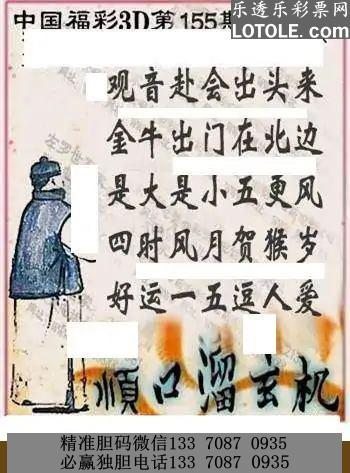 乐透乐彩票网
中国福彩3D第155期
WWW.LOTOLE.COM
观音赴会出头来
金牛出门在北边
是大是小五更风
四时风月贺猴岁
好运一五逗人爱
順口溜玄机
精准胆码微信133 7087 0935
必赢独胆电话133 7087 0935